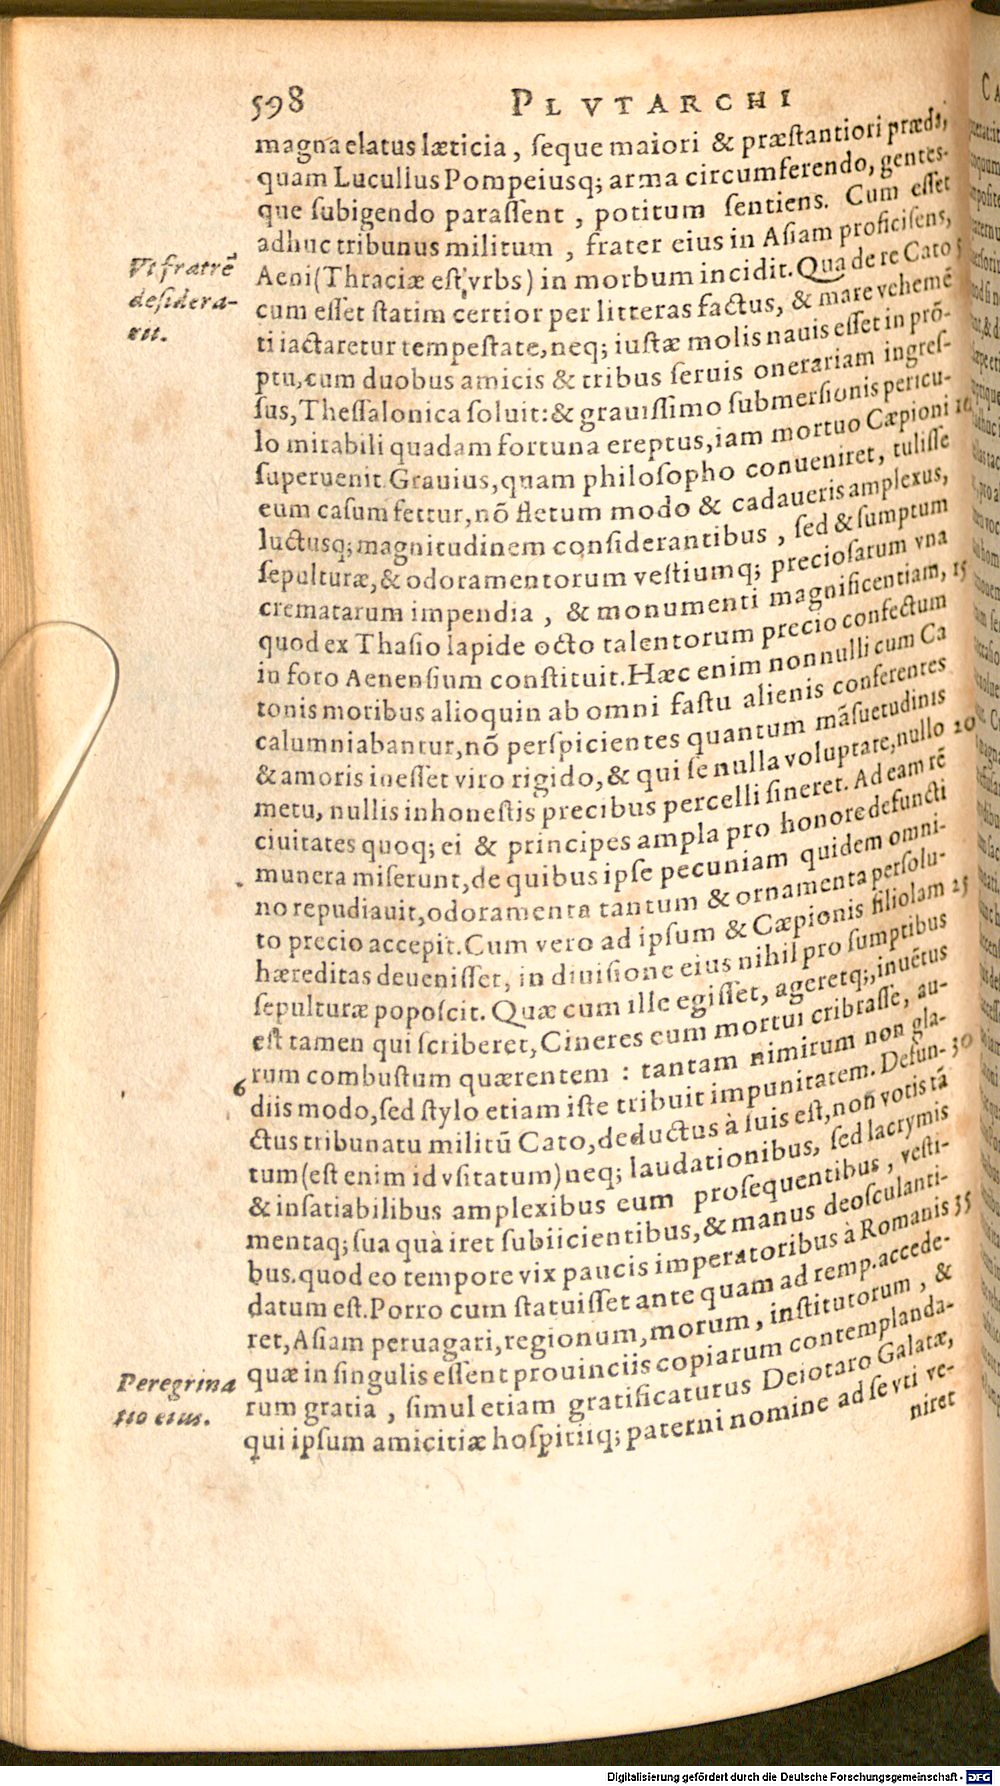 598 PLVTARCHI
magna elatus læticia, ſeque maiori & præſtantiori præda,
quam Lucullus Pompeiusq; arma circumferendo, gentes-
que ſubigendo paraſſent, potitum ſentiens. Cum eſſet
adhuc tribunus militum, frater eius in Aſiam proficiſens,
Vt fratrē
deſidera-
rit.
Aeni (Thraciæ eſt vrbs) in morbum incidit. Qua de re Cato 5
cum eſſet ſtatim certior per litteras factus, & mare vehemē
ti iactaretur tempeſtate, neq; iuſtæ molis nauis eſſet in prō-
ptu, cum duobus amicis & tribus ſeruis onerariam ingreſ-
ſus, Theſſalonica ſoluit: & grauiſſimo ſubmerſionis pericu-
lo mirabili quadam fortuna ereptus, iam mortuo Cæpioni 10
ſuperuenit. Grauius, quam philoſopho conueniret, tuliſſe
eum caſum fertur, nō fletum modo & cadaueris amplexus,
luctusq; magnitudinem conſiderantibus, ſed & ſumptum
ſepulturæ, & odoramentorum veſtiumq; precioſarum vna
crematarum impendia, & monumenti magnificentiam, 15
quod ex Thaſio lapide octo talentorum precio confectum
in foro Aenenſium conſtituit. Hæc enim nonnulli cum Ca
tonis moribus alioquin ab omni faſtu alienis conferentes
calumniabantur, nō perſpicientes quantum māſuetudinis
& amoris ineſſet viro rigido, & qui ſe nulla voluptate, nullo 20
metu, nullis inhoneſtis precibus percelli ſineret. Ad eam rē
ciuitates quoq; ei & principes ampla pro honore defuncti
munera miſerunt, de quibus ipſe pecuniam quidem omni-
no repudiauit, odoramenta tantum & ornamenta perſolu-
to precio accepit. Cum vero ad ipſum & Cæpionis filiolam 25
hæreditas deueniſſet, in diuiſione eius nihil pro ſumptibus
ſepulturæ popoſcit. Quæ cum ille egiſſet, ageretq;, inuētus
eſt tamen qui ſcriberet, Cineres eum mortui cribraſſe, au-
rum combuſtum quærentem: tantam nimirum non gla-
6 diis modo, ſed ſtylo etiam iſte tribuit impunitatem. Defun- 30
ctus tribunatu militū Cato, deductus à ſuis eſt, non votis tā
tum (eſt enim id vſitatum) neq; laudationibus, ſed lacrymis
& inſatiabilibus amplexibus eum proſequentibus, veſti-
mentaq; ſua quà iret ſubiicientibus, & manus deoſculanti-
bus. quod eo tempore vix paucis imperatoribus à Romanis 35
datum eſt. Porro cum ſtatuiſſet ante quam ad remp. accede-
ret, Aſiam peruagari, regionum, morum, inſtitutorum, &
Peregrina
tio eius.
quæ in ſingulis eſſent prouinciis copiarum contemplanda-
rum gratia, ſimul etiam gratificaturus Deiotaro Galatæ,
qui ipſum amicitiæ hoſpitiiq; paterni nomine ad ſe vti ve-
niret
Digitalisierung gefördert durch die Deutsche Forschungsgemeinschaft - DFG